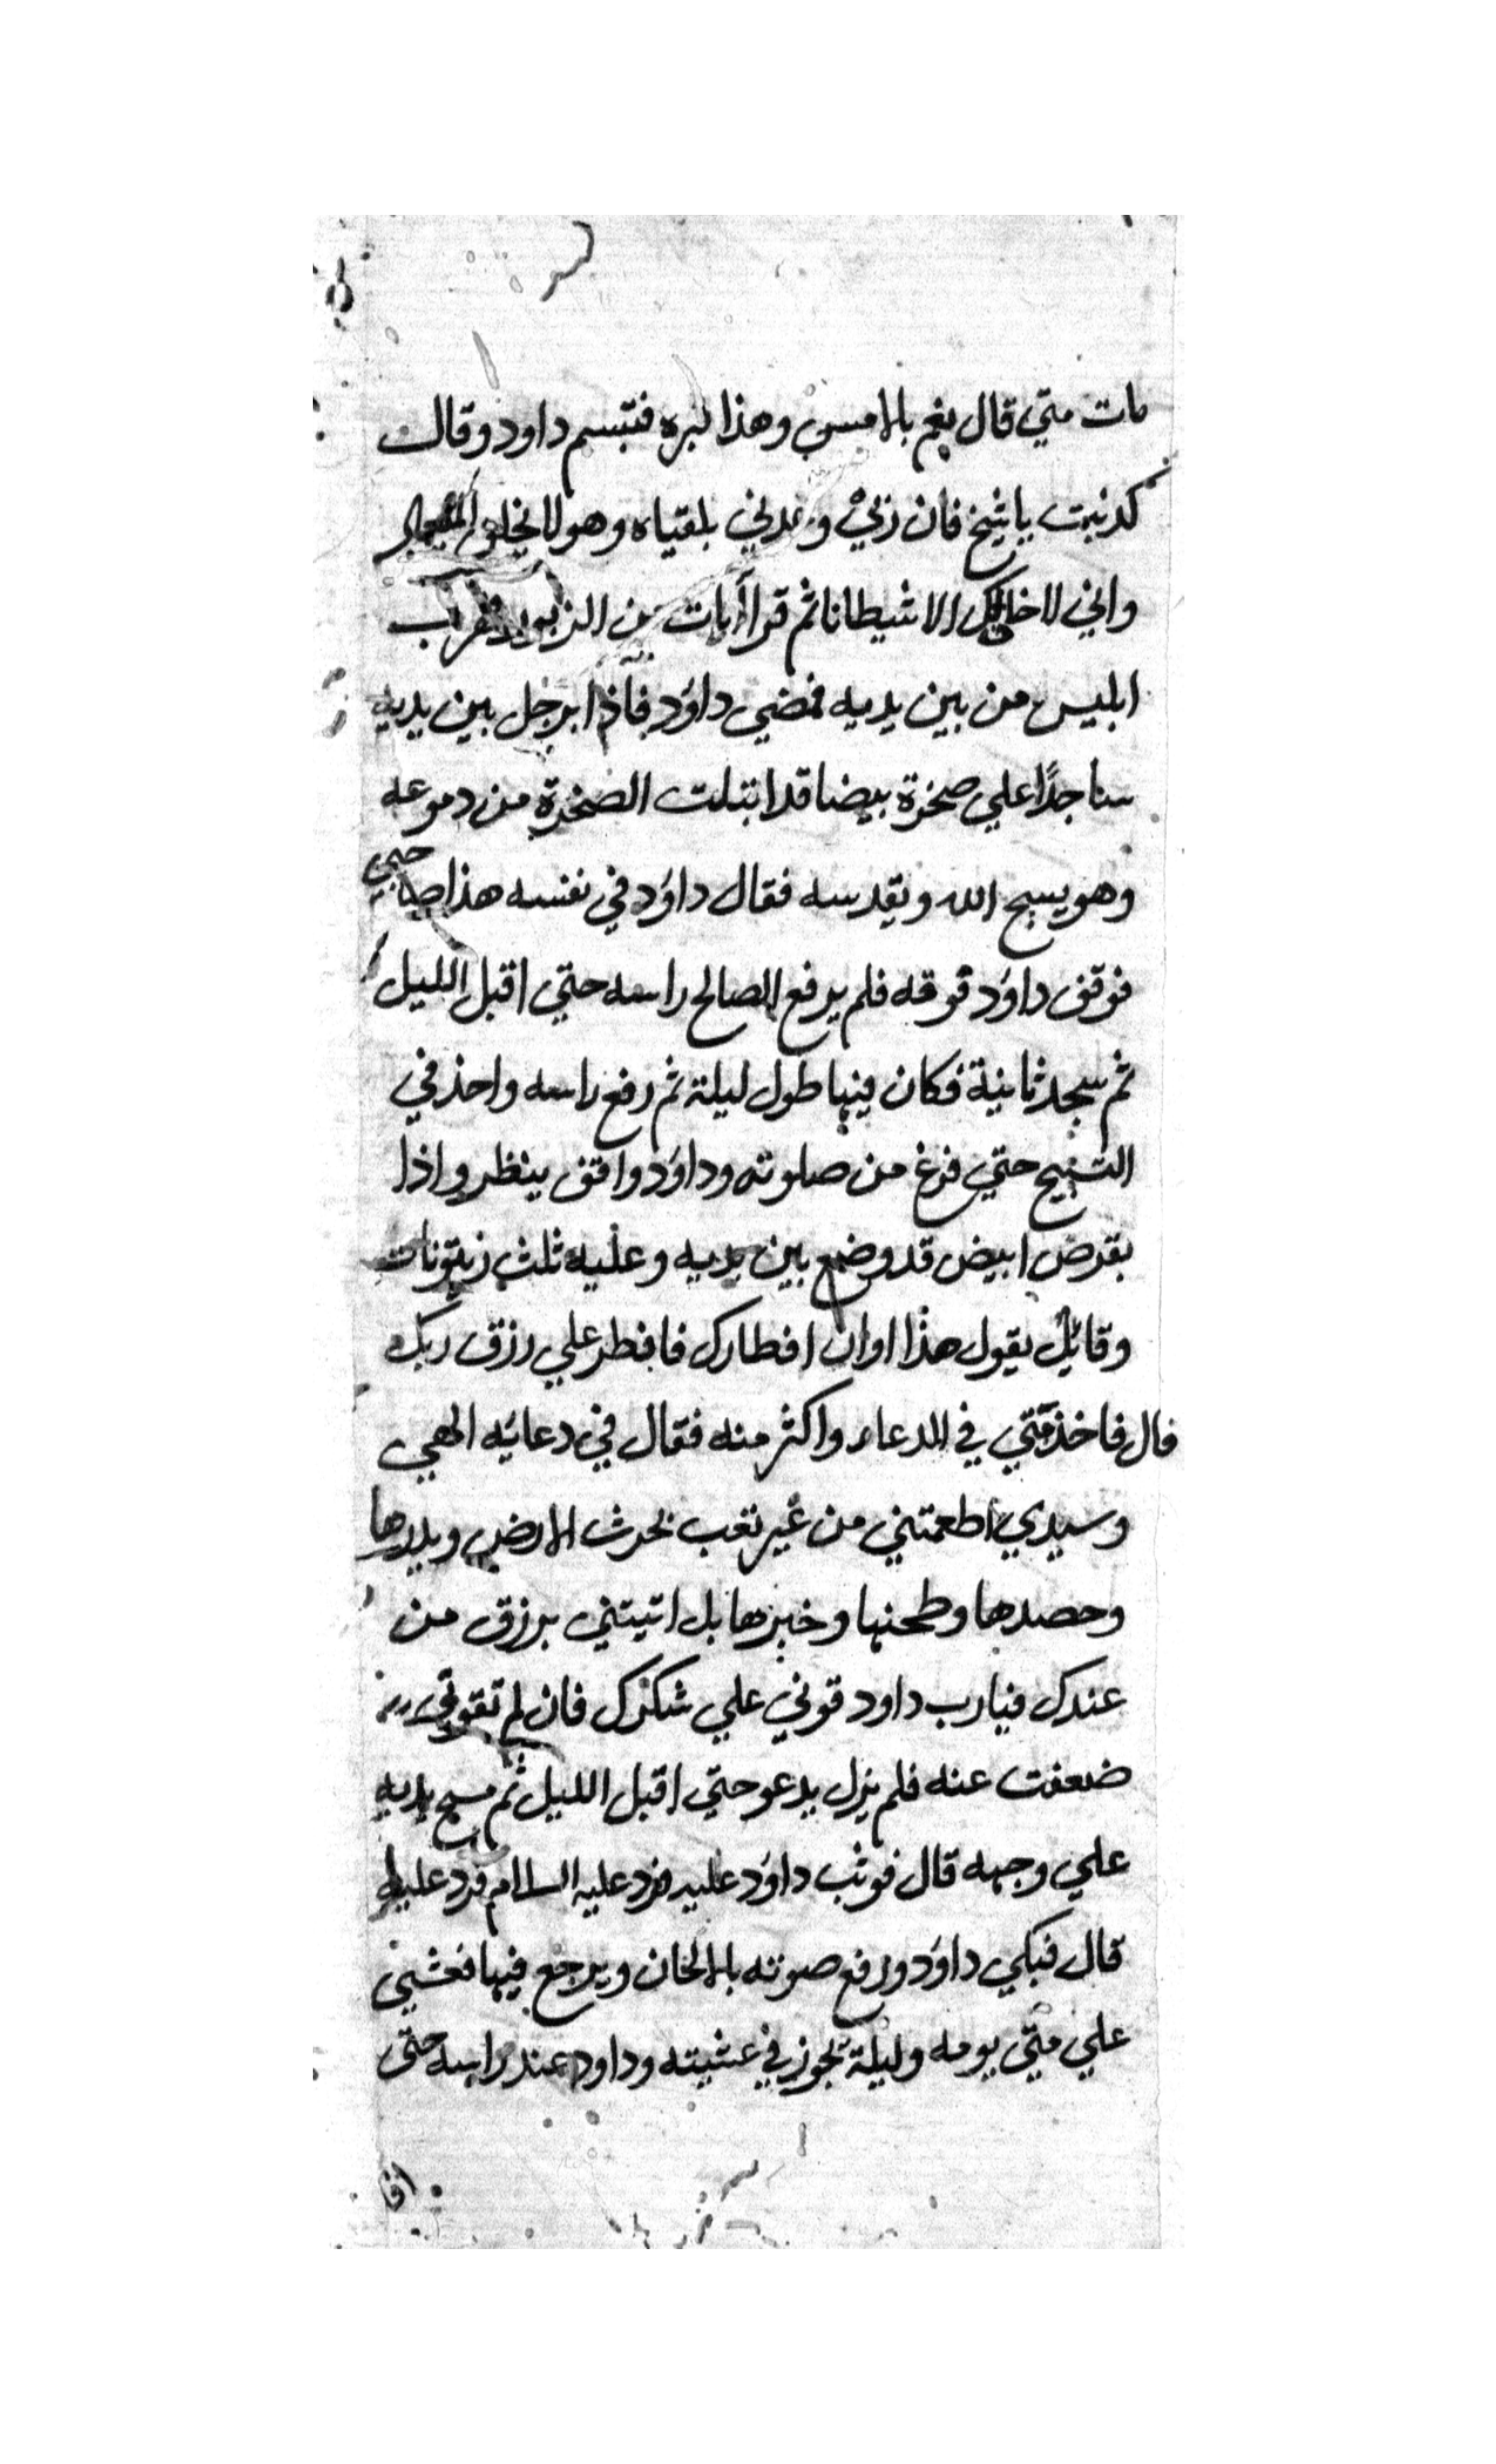 مات متي قال نعم بالامس وهذا قبره فتبسم داود وقال
كذبت يا شيخ فان ربي وعدني بلقياه وهو لا يخلف الميعاد
واني لا خالك الا شيطانا ثم قرا آيات من الزبور فهرب
ابليس من بين يديه فمضي داوَد فاذا برجل بين يديه
ساجدًا علي صخرة بيضا قد ابتلت الصخرة من دموعه
وهو يسبح الله ويقدسه فقال داوَد في نفسه هذا صاحبي
فوقف داوَد فوقه فلم يرفع الصالح راسه حتي اقبل الليل
ثم سجد ثانية فكان فيها طول ليلة ثم رفع راسه واخذ في
التسبيح حتي فرغ من صلوته وداوَد واقف ينظر واذا
بقرص ابيض قد وضع بين يديه وعليه ثلث زيتونات
وقائل يقول هذا اوان افطارك فافطر علي رزق ربك
قال فاخذ متي في الدعاء واكثر منه فقال في دعائه الهي
وسيدي اطعمتني من غير تعب بحرث الارض وبدرها
وحصدها وطحنها وخبزها بل اتيتني برزق من
عندك فيارب داود قوني علي شكرك فان لم تقوني
ضعفت عنه فلم يزل يدعو حتي اقبل الليل ثم مسح يديه
علي وجهه قال فوثب داوَد عليه فرد عليه السلام فرد عليه
قال فبكي داوَد ورفع صوته بالالحان ويرجع فيها فغشي
علي متي يومه وليلة يجوز في غشيته وداود عند راسه حتى
افا